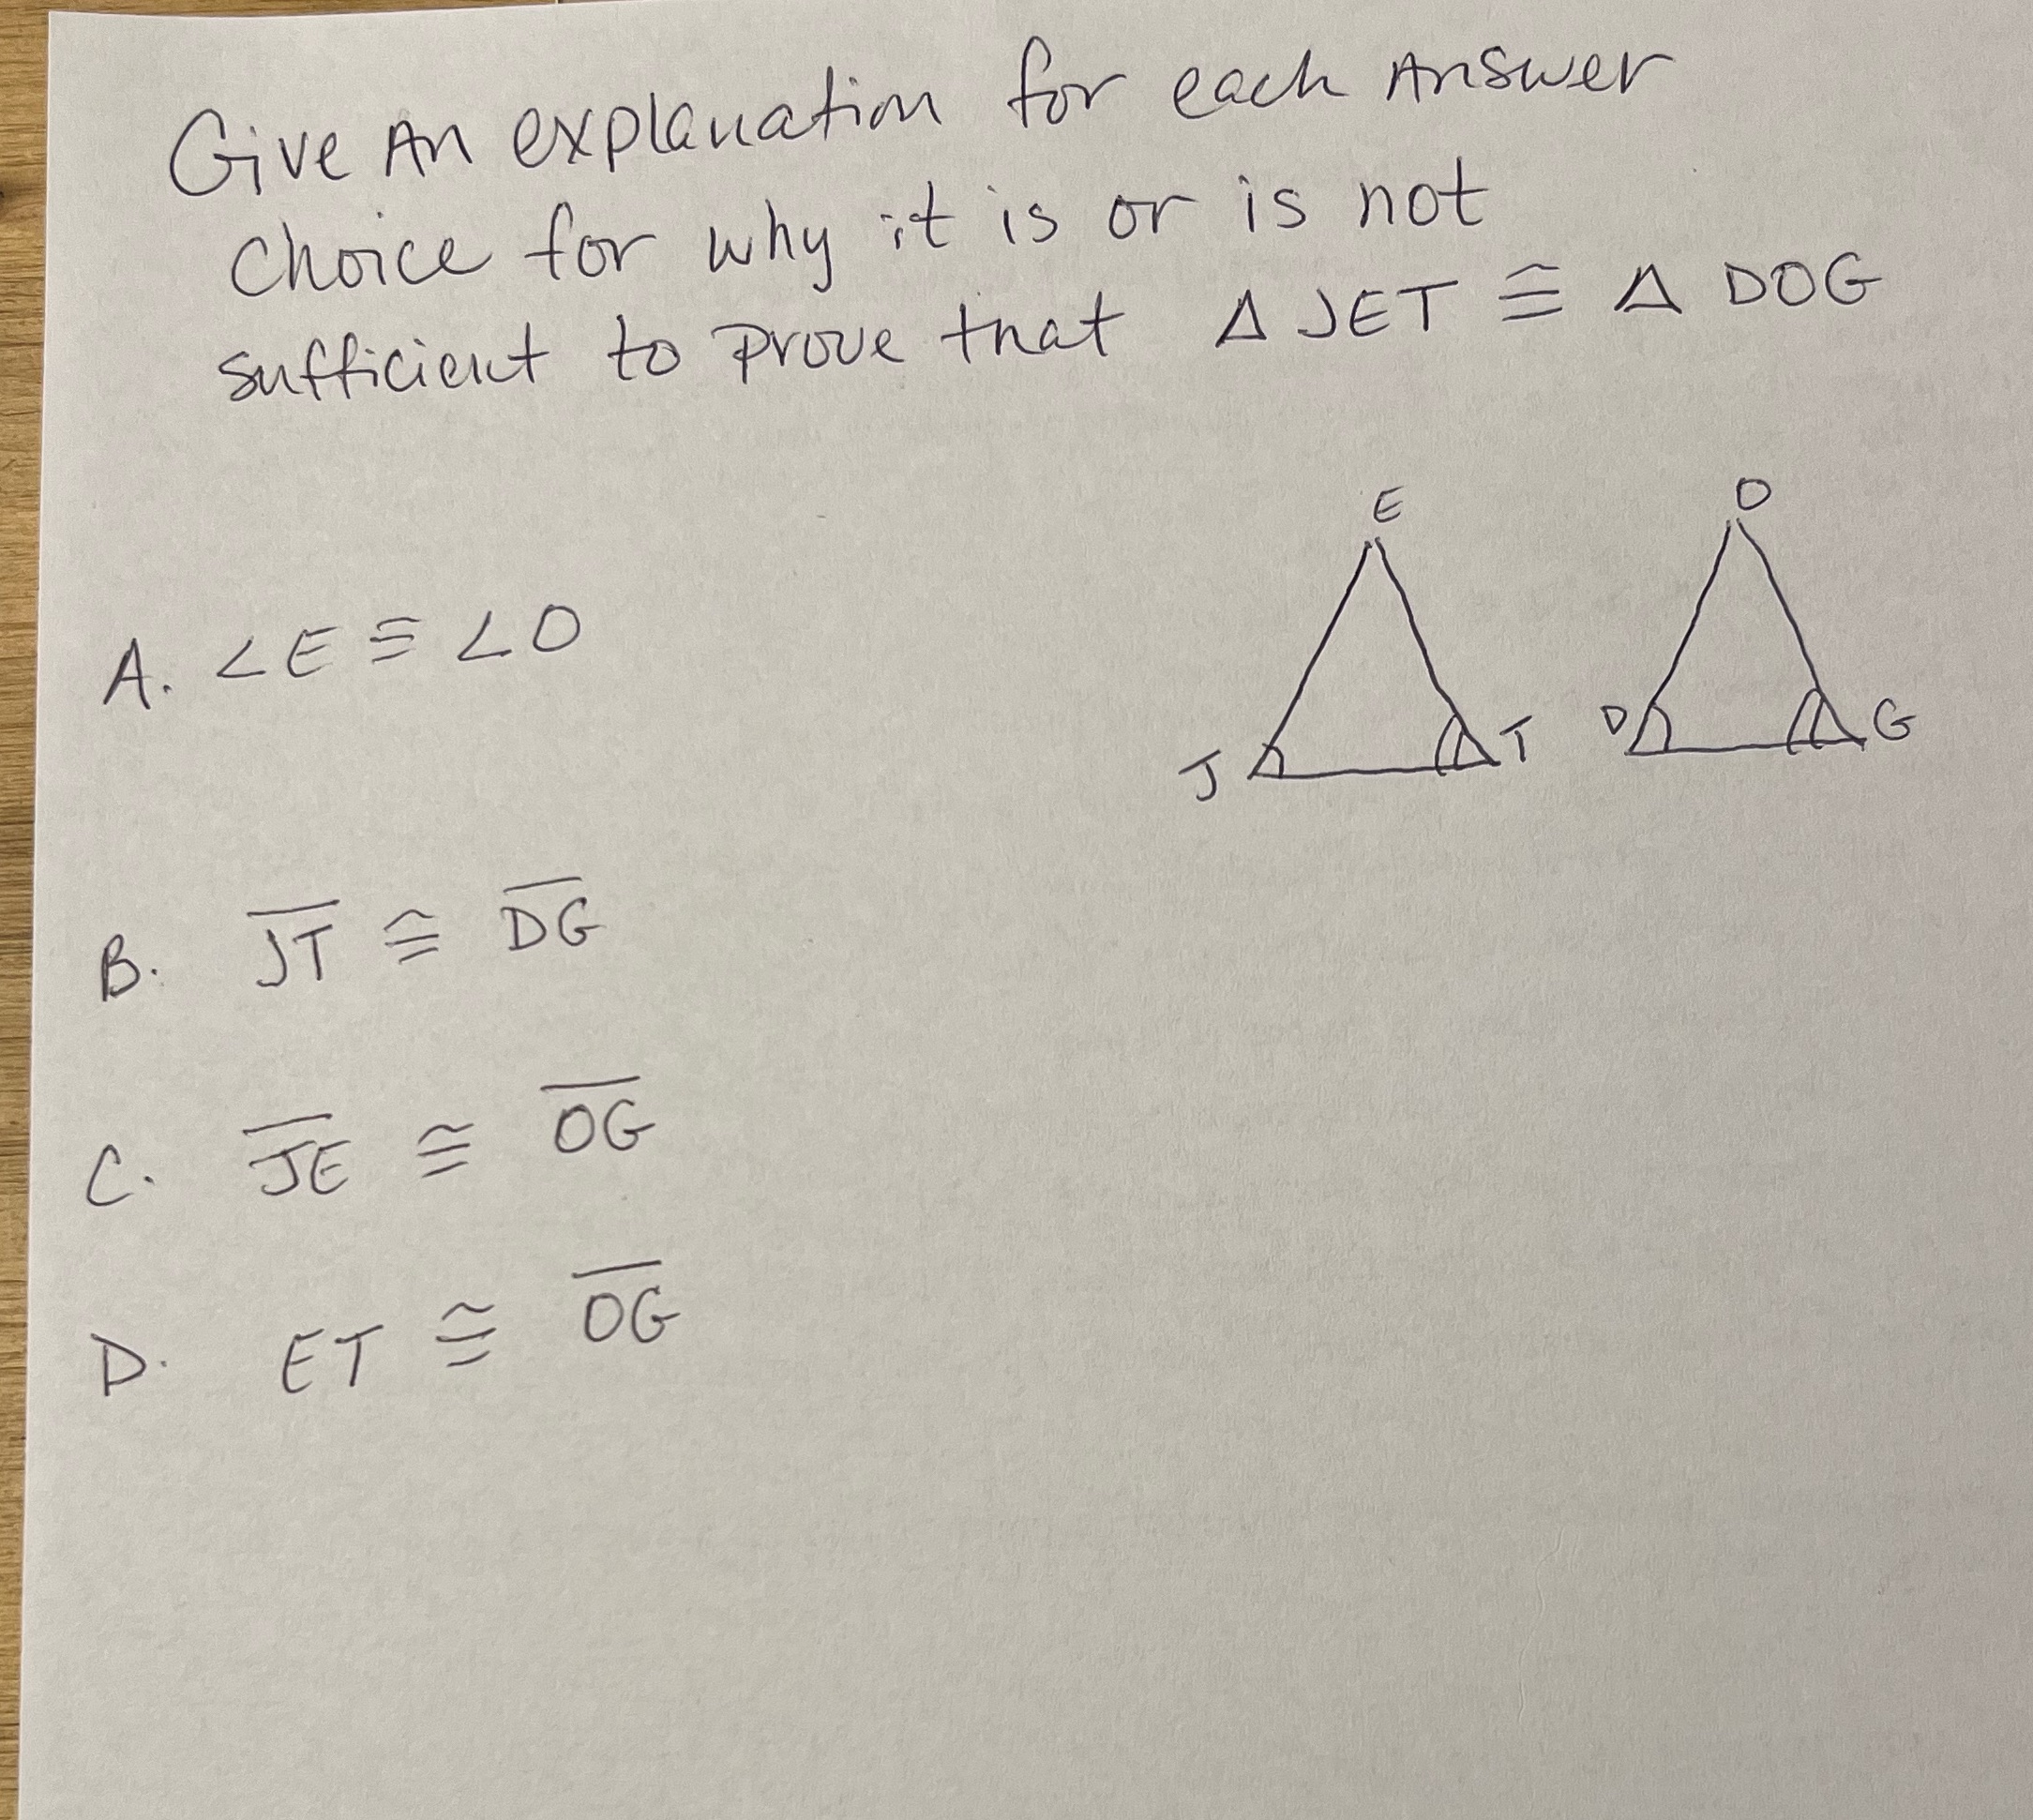 Give An explanation for each Answer
choice for why it is or is not
sufficient to prove that Δ JET ≅ Δ DOG
E
O
A. ∠E ≅ ∠O
J
T
D
G
B. J̅T̅ ≅ D̅G̅
C. J̅E̅ ≅ O̅G̅
D. ET ≅ O̅G̅